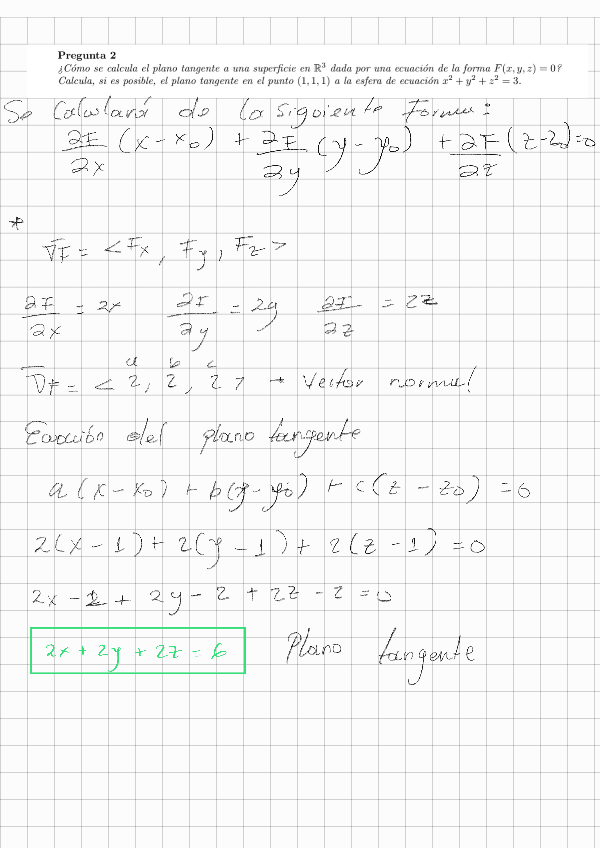 Pregunta 2
¿Cómo se calcula el plano tangente a una superficie en ℝ³ dada por una ecuación de la forma F(x, y, z) = 0?
Calcula, si es posible, el plano tangente en el punto (1, 1, 1) a la esfera de ecuación x² + y² + z² = 3.
Se Calculará de la siguiente forma:
∂F/∂x (x - x₀) + ∂F/∂y (y - y₀) + ∂F/∂z (z - z₀) = 0
*
∇F = <Fx, Fy, Fz>
∂F/∂x = 2x ∂F/∂y = 2y ∂F/∂z = 2z
a b c
∇F = <2, 2, 2> → Vector normal
Ecuación del plano tangente
a(x - x₀) + b(y - y₀) + c(z - z₀) = 0
2(x - 1) + 2(y - 1) + 2(z - 1) = 0
2x - 2 + 2y - 2 + 2z - 2 = 0
2x + 2y + 2z = 6 Plano tangente